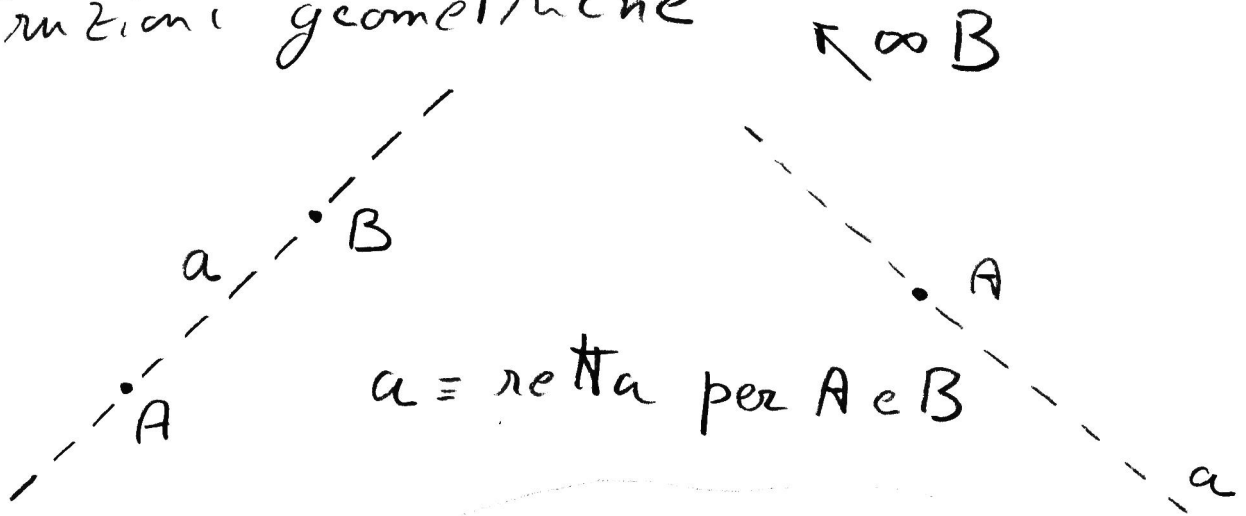 ruzioni geometriche
∞ B
B
a
A
A
a ≡ retta per A e B
a